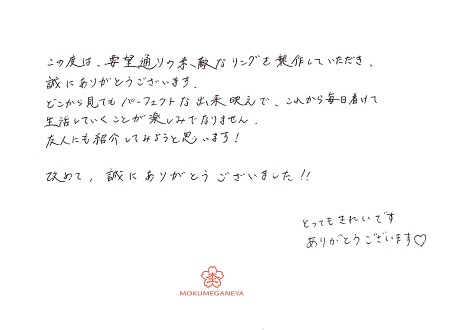 この度は、要望通りの素敵なリングを製作していただき、
誠にありがとうございます。
どこから見てもパーフェクトな出来映えで、これから毎日着けて
生活していくことが楽しみでなりません。
友人にも紹介してみようと思います!
改めて、誠にありがとうございました!!
とってもきれいです
ありがとうございます♡
MOKUMEGANEYA